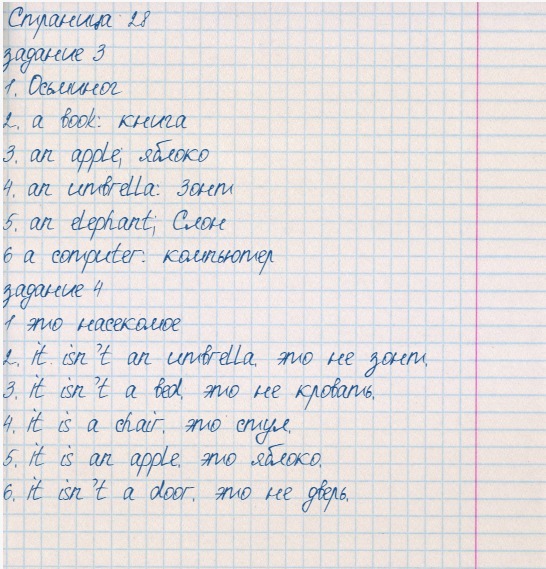 Страница 28
задание 3
1. Осьминог
2. a book: книга
3. an apple; яблоко
4. an umbrella: Зонт
5. an elephant; Слон
6 a computer: компьютер
задание 4
1 это насекомое
2. it isn't an umbrella. это не зонт.
3. it isn't a bed. это не кровать.
4. it is a chair. это стул.
5. it is an apple. это яблоко.
6. it isn't a door. это не дверь.